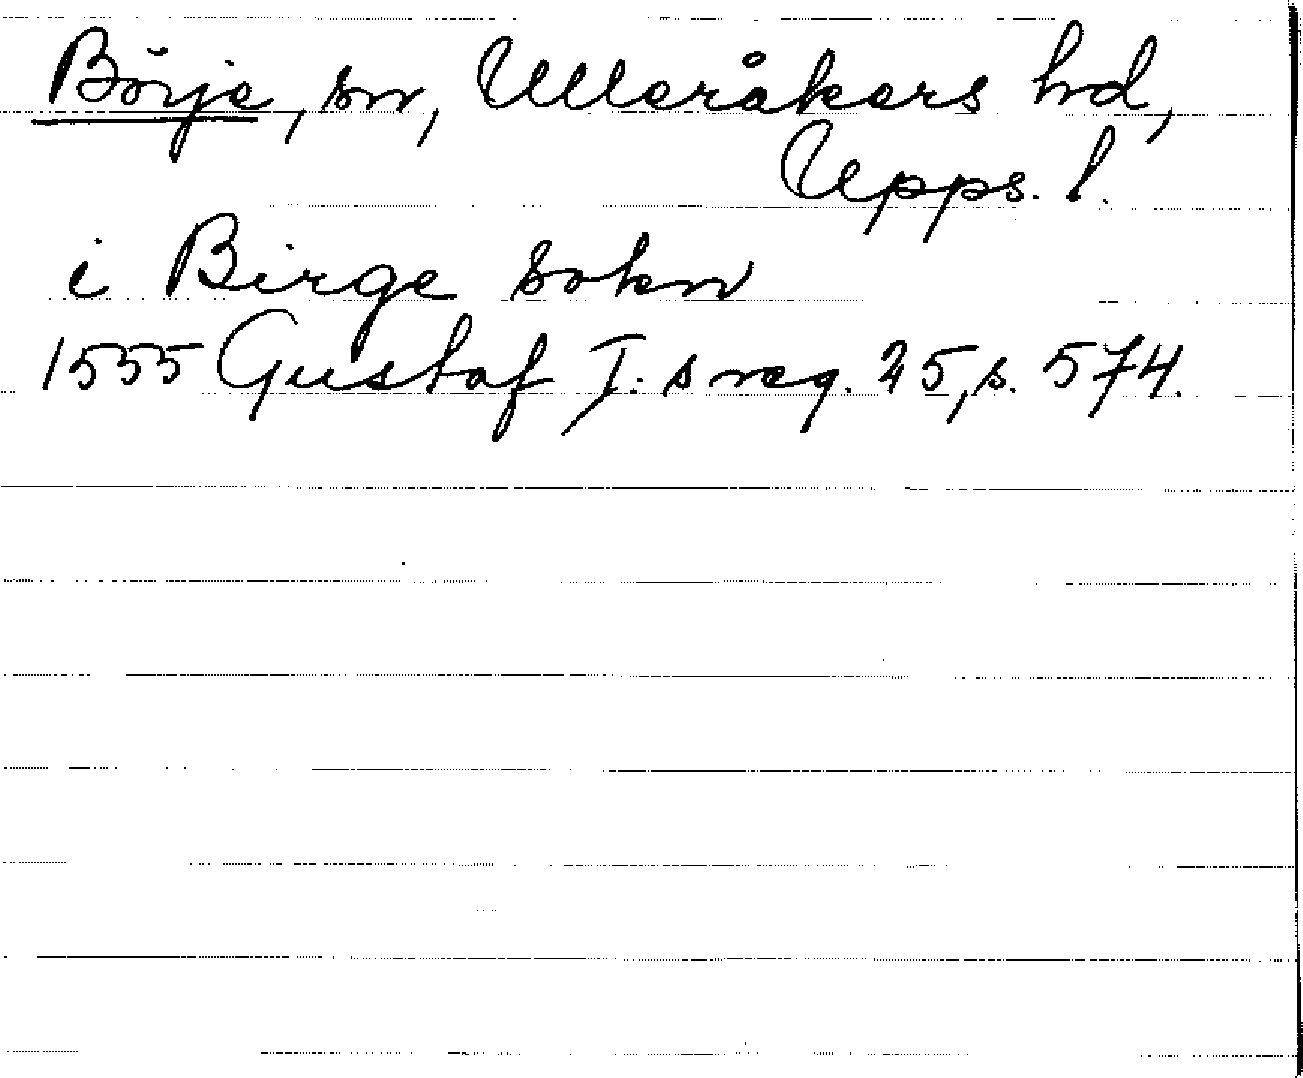 Börje, sn, Ulleråkers hd,
Upps. l.
i Birge sokn
1555 Gustaf I:s reg. 25, s. 574.